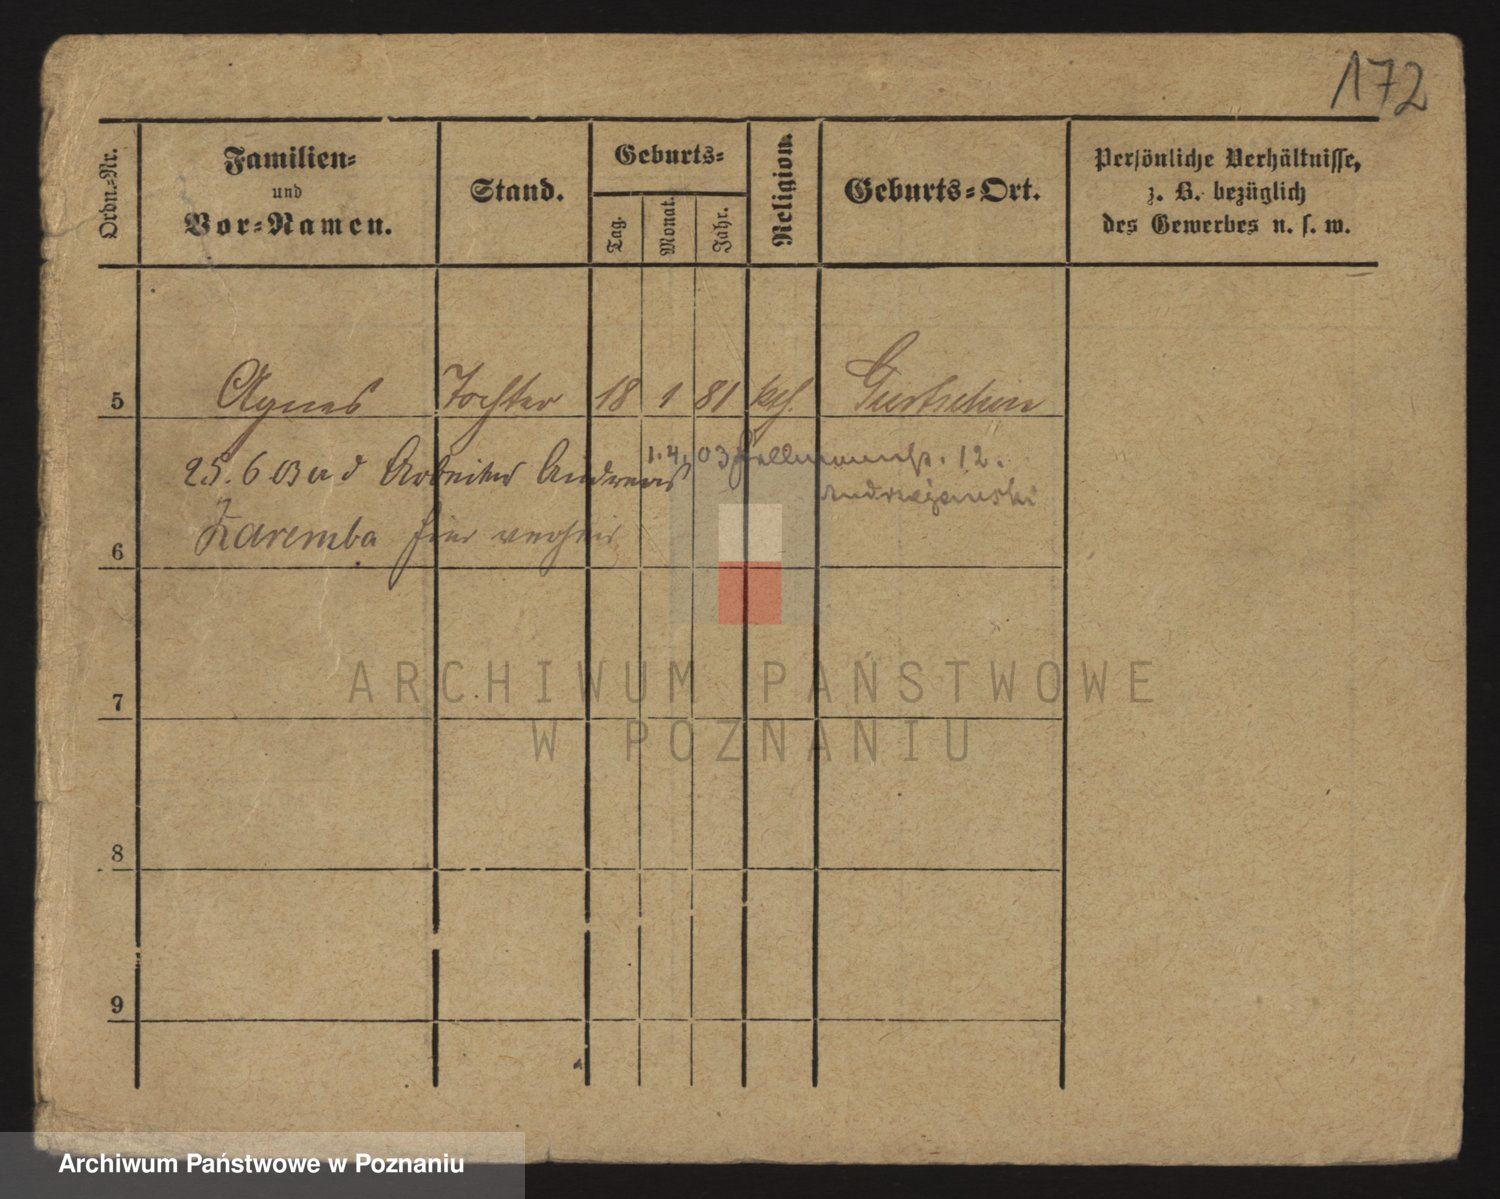 172
Ordn.-Nr.
Familien-
und
Vor-Namen.
Stand.
Geburts-
Tag.
Monat.
Jahr.
Religion.
Geburts-Ort.
Persönliche Verhältnisse,
z. B. bezüglich
des Gewerbes u. s. w.
5 Agnes Tochter 18 1 81 kath. Gurtschin
1.4.03 12.
25. 6 03 a d Arbeiter Andreas
Andrzejewski
6 Zaremba hier verheir
7
8
9
ARCHIWUM PAŃSTWOWE
W POZNANIU
Archiwum Państwowe w Poznaniu